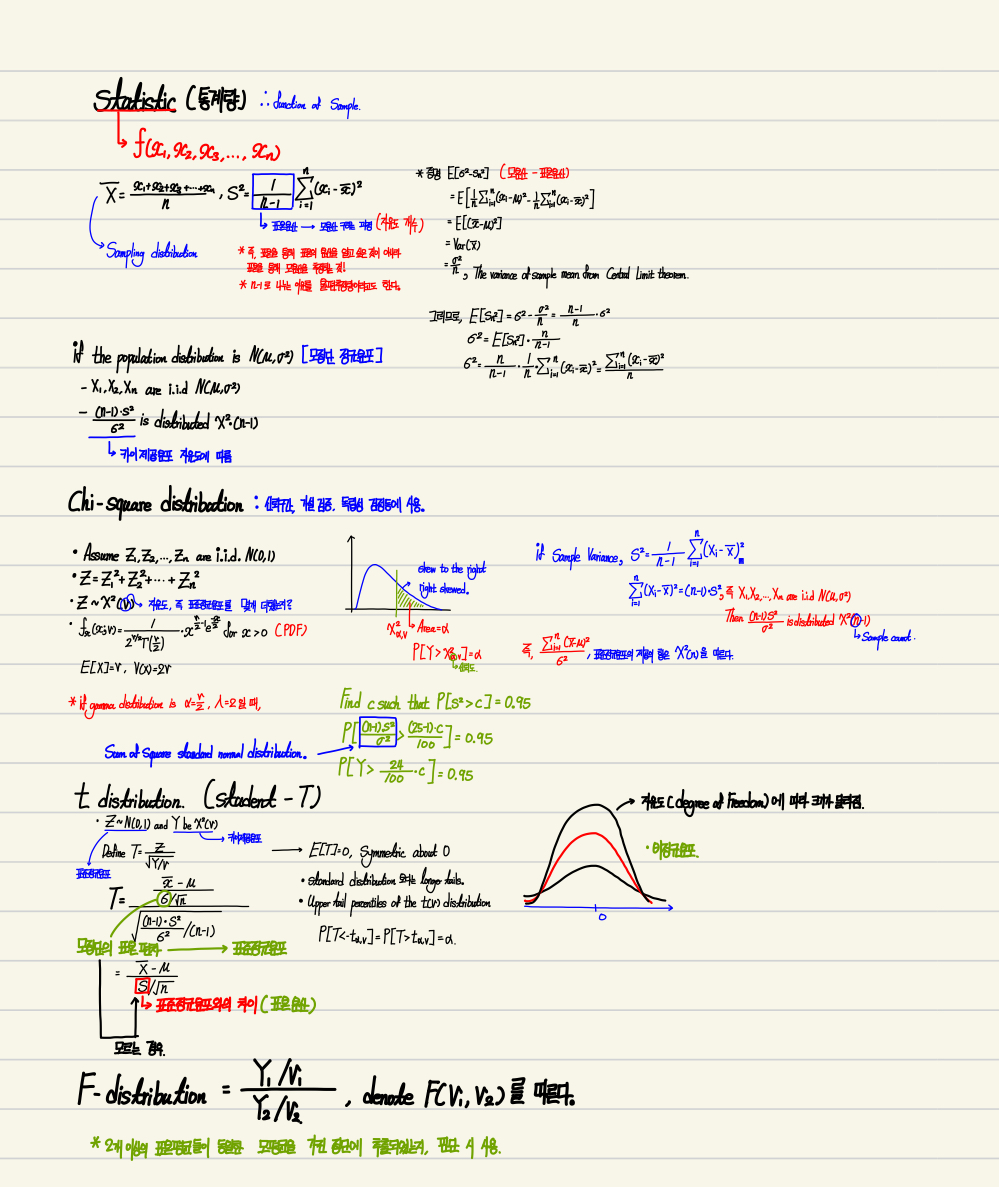 Statistic (통계량) ∴ function of Sample.
f(x₁, x₂, x₃, ..., xₙ)
X̄ = (x₁+x₂+x₃+...+xₙ)/n , S² = 1/(n-1) Σᵢ₌₁ⁿ (xᵢ - x̄)²
표본분산 → 모분산 (자유도 개수)
Sampling distribution
* 즉, 표본을 통해 표본의 분산을 알고 싶은 것이 아니라
표본을 통해 모분산을 추정하는 것!
* n-1로 나누는 이유를 한다.
* 증명 E[σ²-Sn²] (모분산 - 표본분산)
= E[1/n Σᵢ₌₁ⁿ (xᵢ-μ)² - 1/n Σᵢ₌₁ⁿ (xᵢ-x̄)²]
= E[(x̄-μ)²]
= Var(x̄)
= σ²/n , The variance of sample mean from Central Limit theorem.
그러므로, E[Sn²] = σ² - σ²/n = (n-1)/n · σ²
σ² = E[Sn²] · n/(n-1)
σ² = n/(n-1) · 1/n · Σᵢ₌₁ⁿ (xᵢ-x̄)² = Σᵢ₌₁ⁿ (xᵢ-x̄)²/n
if the population distribution is N(μ, σ²) [모집단 정규분포]
- X₁, X₂, Xₙ are i.i.d N(μ, σ²)
- (n-1)·S²/σ² is distributed X²·(n-1)
카이제곱분포 자유도에 따름
Chi-square distribution : 신뢰구간, 가설 검증, 독립성 검정등에 사용.
• Assume Z₁, Z₂, ..., Zₙ are i.i.d. N(0,1)
• Z = Z₁² + Z₂² + ... + Zₙ²
• Z ~ X²(v) → 자유도, 즉 표준정규분포를 몇개 더했는지?
• fₓ(x;v) = 1/(2^(v/2) Γ(v/2)) · x^(v/2-1) e^(-x/2) for x > 0 (PDF)
E[X] = v, V(X) = 2v
* if gamma distribution is α = v/2, λ = 2 일 때,
skew to the right
right skewed.
X²α,v Area = α
P[Y > X²α,v] = α
if Sample Variance, S² = 1/(n-1) Σᵢ₌₁ⁿ (Xᵢ - X̄)²
Σᵢ₌₁ⁿ (Xᵢ-X̄)² = (n-1)·S², 즉 X₁, X₂, ..., Xₙ are i.i.d N(μ, σ²)
Then (n-1)S²/σ² is distributed X²(n-1)
Sample count.
즉, Σᵢ₌₁ⁿ (Xᵢ-μ)²/σ² , 표준정규분포의 제곱의 합은 X²(n)을 따른다.
Find c such that P[S² > c] = 0.95
P[(n-1)·S²/σ² > (25-1)·c/100] = 0.95
Sum of Square standard normal distribution.
P[Y > 24/100 · c] = 0.95
t distribution. (Student - T)
• Z ~ N(0,1) and Y be X²(v)
카이제곱분포
Define T = Z/√(Y/v) → E[T] = 0, Symmetric about 0
표준정규분포
• standard distribution 보다는 longer tails.
• Upper tail percentiles of the t(v) distribution
P[T < -tα,v] = P[T > tα,v] = α.
T = ((x̄ - μ)/(σ/√n)) / √((n-1)·S²/σ² /(n-1))
모집단의 표준편차 → 표준정규분포
= (X̄ - μ)/(S/√n)
표준정규분포와의 차이 (표본분산)
모르는 경우.
자유도 (degree of Freedom)에 따라 크기가 달라짐.
0
F-distribution = (Y₁/v₁)/(Y₂/v₂) , denote F(v₁, v₂)를 따른다.
* 2개 이상의 표본평균들이 동일한 모평균을 가진 집단에 추출되었는지, 판단 시 사용.